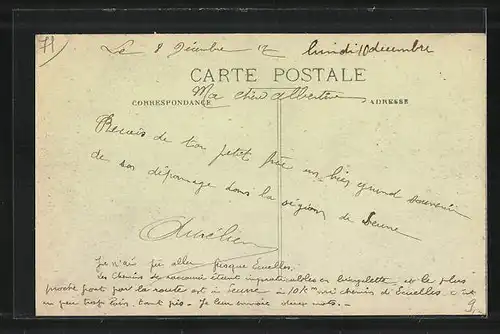 71
Le 8 Décembre 17 lundi 10 decembre
CARTE POSTALE
Ma chère Albertine
CORRESPONDANCE ADRESSE
Recois de ton petit frère un bien grand souvenir
de son dépannage dans la région de Seurre
Aurélien
Je n'ai pu aller jusque Ecuelles.
les chemins de raccourci étant impraticables en bicyclette, et le plus
proche pont par la route est à Seurre à 10 km mi chemin d'Ecuelles c'est
un peu trop loin, tant pis. Je leur envoie deux mots.